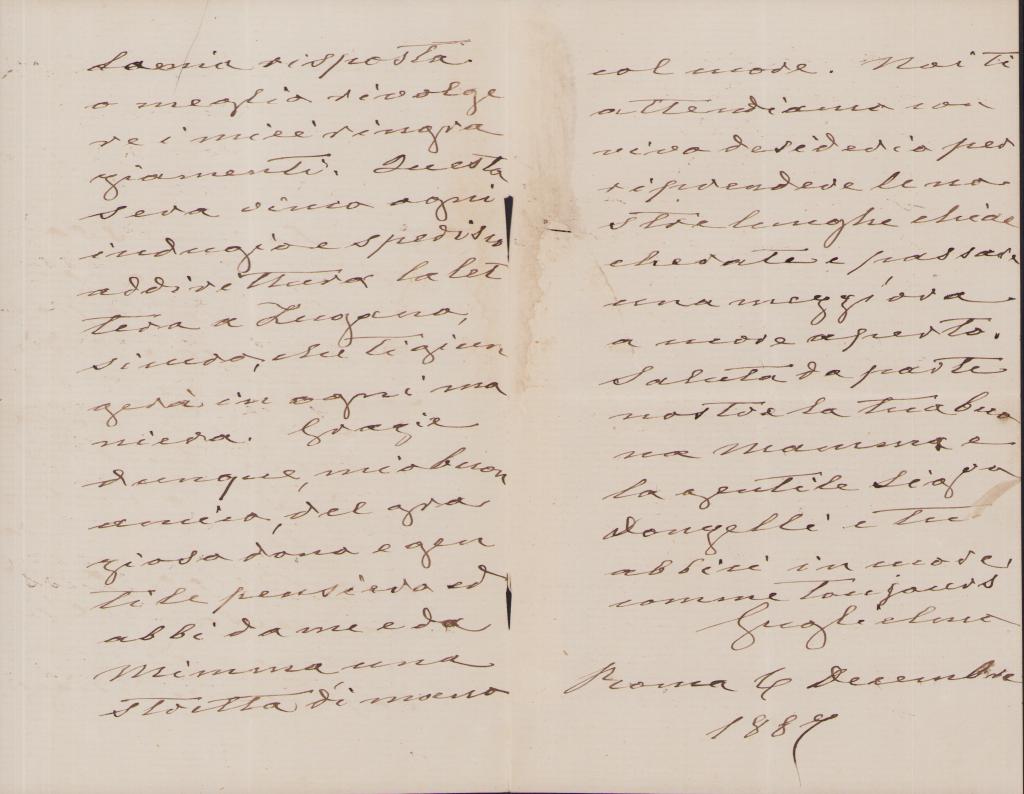 La mia risposta
o meglio rivolge
re i miei ringra
ziamenti. Questa
sera vinco ogni
indugio e spedisco
addirittura la let
tera a Lugano,
sicuro, che ti giun
gerà in ogni ma
niera. Grazie
dunque, mio buon
amico, del gra
zioso dono e gen
tile pensiero ed
abbi da me e da
Mimma una
stretta di mano
col core. Noi ti
attendiamo con
vivo desiderio per
riprendere le no
stre lunghe chiac
cherate e passare
una mezz'ora
a core aperto.
Saluta da parte
nostra la tua buo
na Mamma e
la gentile Sigra
Donzelli e tu
abbici in core,
comme toujours
Guglielmo
Roma 6 Decembre
1887